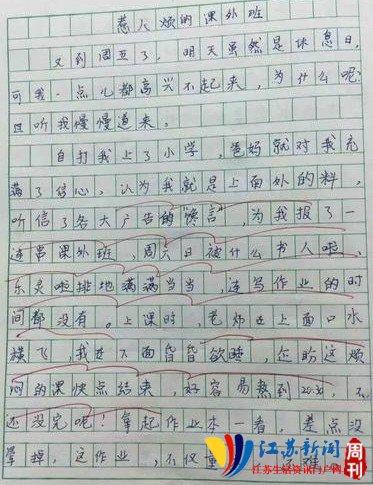 惹人烦的课外班
又到周五了，明天虽然是休息日，
可我一点儿都高兴不起来，为什么呢？
且听我慢慢道来。
自打我上了小学，爸妈就对我充
满了信心，认为我就是上面外的料，
听信了各大广告的"谗言"，为我报了一
连串课外班，周六日被什么书人啦、
东灵啦排地满满当当，连写作业的时
间都没有。上课时，老师在上面口水
横飞，我在下面昏昏欲睡，企盼这烦
闷的课快点结束，好容易熬到20:30，不
还没完呢！拿起作业本一看，差点没
晕掉。这作业，不仅量
这难
江苏新闻周刊
江苏生活资讯门户网